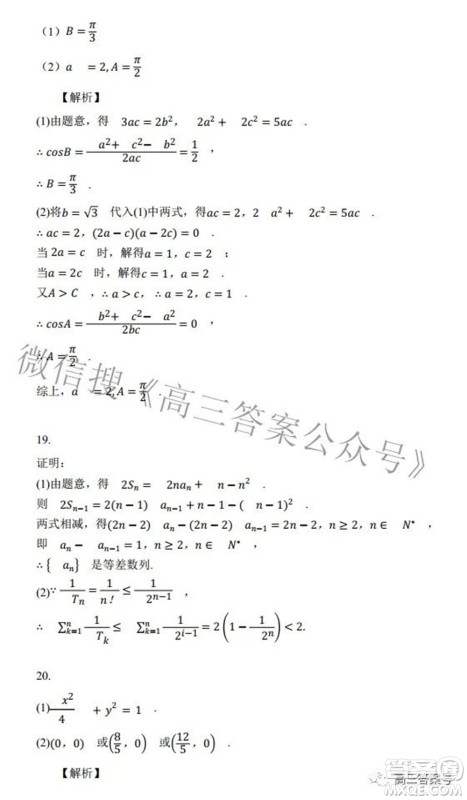 (1) B = π/3
(2) a = 2, A = π/2
【解析】
(1)由题意，得 3ac = 2b²， 2a² + 2c² = 5ac .
∴ cosB = (a² + c² − b²)/(2ac) = 1/2 ，
∴ B = π/3 .
(2)将b = √3 代入(1)中两式，得ac = 2，2 a² + 2c² = 5ac .
∴ ac = 2，(2a − c)(a − 2c) = 0 .
当 2a = c 时，解得a = 1，c = 2 ；
当a = 2c 时，解得c = 1，a = 2 .
又A > C ，∴ a > c，∴ a = 2，c = 1 .
∴ cosA = (b² + c² − a²)/(2bc) = 0 ，
∴ A = π/2 .
综上，a = 2, A = π/2 .
微信搜《高三答案公众号》
19.
证明：
(1)由题意得 2Sₙ = 2naₙ + n − n² .
则 2Sₙ₋₁ = 2(n − 1) aₙ₋₁ + n − 1 − ( n − 1)² .
两式相减，得(2n − 2) aₙ − (2n − 2) aₙ₋₁ = 2n − 2，n ≥ 2，n ∈ N* ，
即 aₙ − aₙ₋₁ = 1，n ≥ 2，n ∈ N* ，
∴ { aₙ} 是等差数列.
(2)∵ 1/Tₙ = 1/n! ≤ 1/2ⁿ⁻¹ ，
∴ ∑ₖ₌₁ⁿ 1/Tₖ ≤ ∑ₖ₌₁ⁿ 1/2ⁱ⁻¹ = 2(1 − 1/2ⁿ) < 2.
20.
(1) x²/4 + y² = 1 .
(2)(0，0) 或(8/5，0) 或(12/5，0) .
【解析】
高三答案号
MXQE.COM